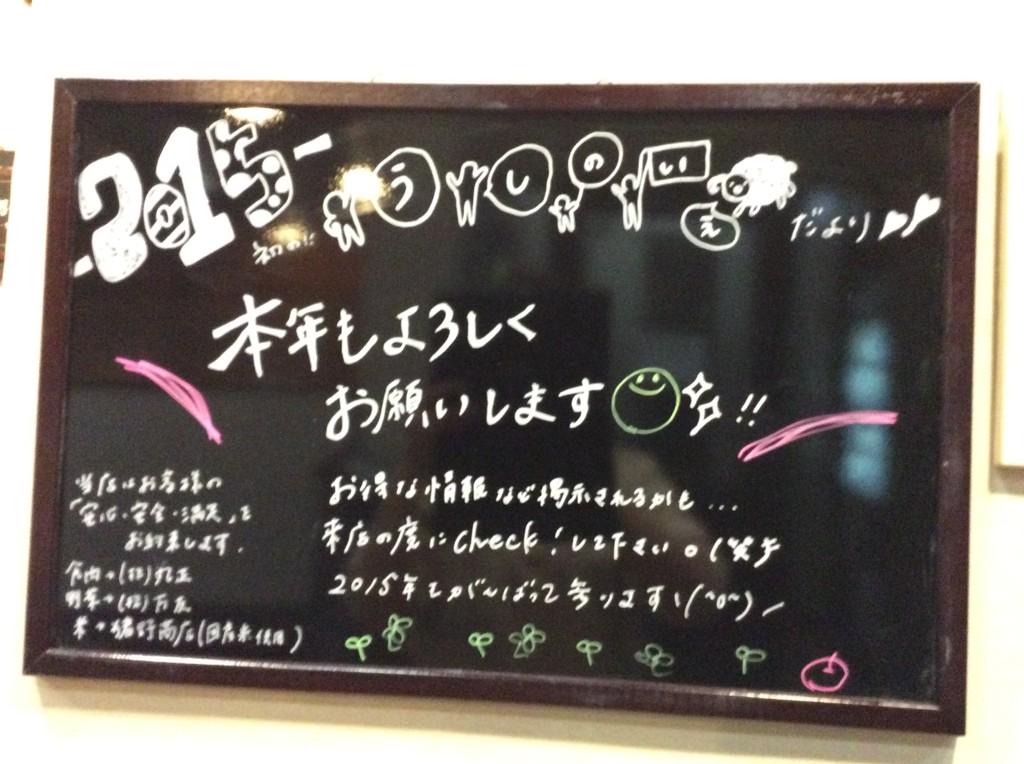 -2015-
初の!! うしのいえ だより
本年もよろしく
お願いします !!
当店はお客様の
「安心・安全・満足」を
お約束します.
お得な情報など掲示されるかも...
来店の度にCheck!して下さい。(笑)
2015年もがんばって参ります\(^o^)/
牛肉→(株)
野菜→(株)
米→猪野商店(国産米使用)